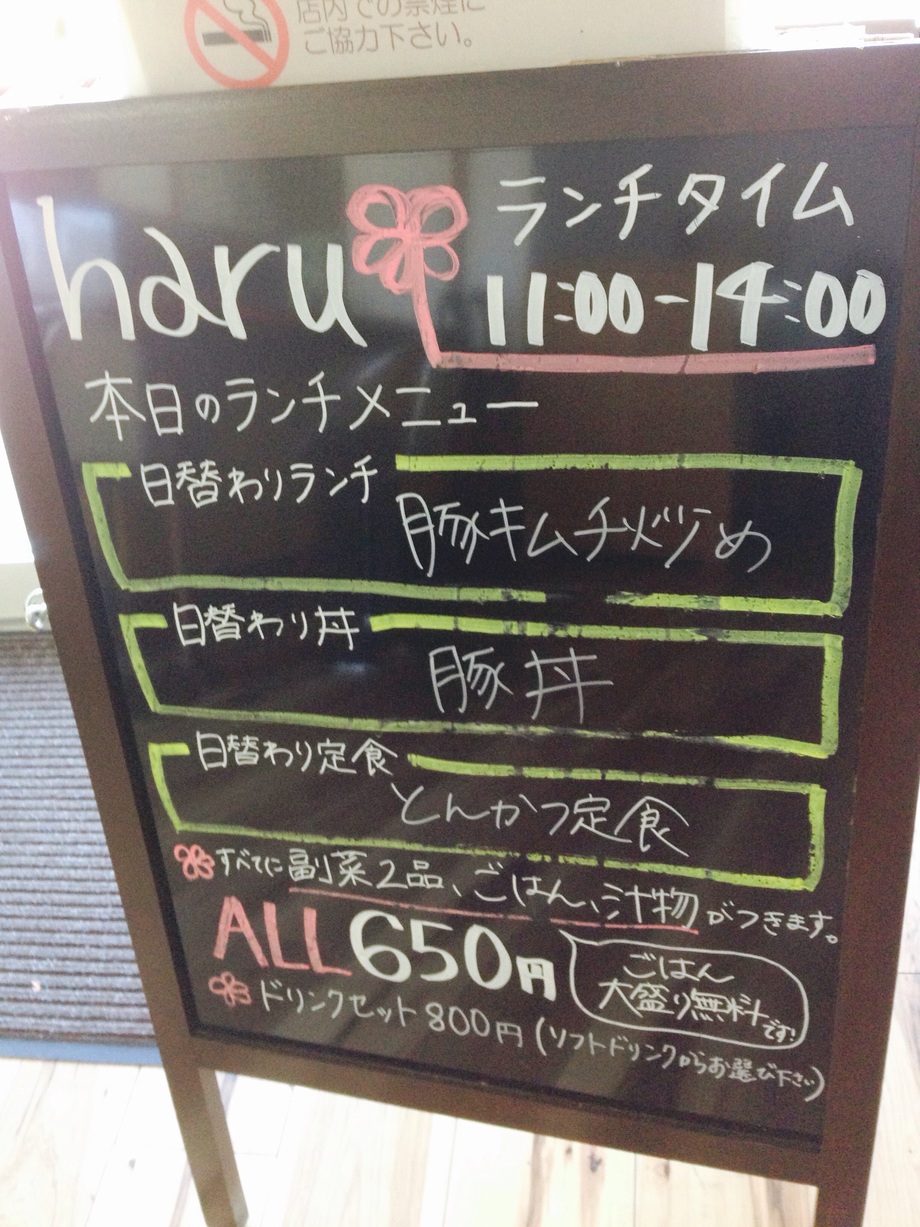 店内での禁煙に
ご協力下さい。
haru
ランチタイム
11:00-14:00
本日のランチメニュー
日替わりランチ
豚キムチ炒め
日替わり丼
豚丼
日替わり定食
とんかつ定食
すべてに副菜2品、ごはん、汁物がつきます。
ALL 650円
ごはん
大盛り無料です!
ドリンクセット 800円 (ソフトドリンクからお選び下さい)